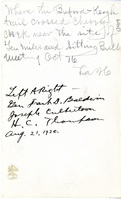 Where the Buford-Keogh
trail crossed Cherry
Creek near the site of
Gen Miles and Sitting Bull
meeting Oct 76
La 76
Left to Right -
Gen Frank D. Baldwin
Joseph Culbertson
H. C. Thompson
Aug. 21, 1920.